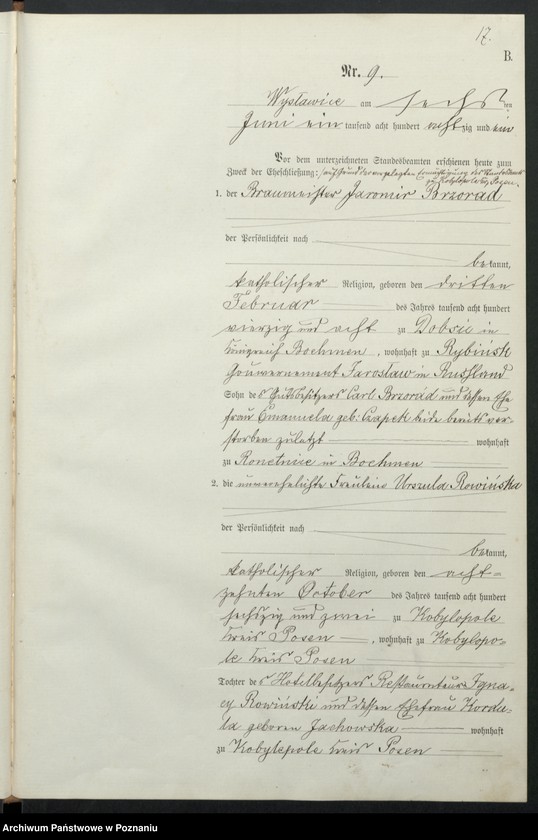 17.
B.
Nr. 9.
Wysławice am sechs ten
Juni ein tausend acht hundert achtzig und ein
Vor dem unterzeichneten Standesbeamten erschienen heute zum
Zweck der Eheschließung: auf Grund der vorgelegten Ermächtigung des Standesamts
zu Kobylepole Kr. Posen.
1. der Braumeister Jaromir Brzorád
der Persönlichkeit nach
bekannt,
katholischer Religion, geboren den dritten
Februar des Jahres tausend acht hundert
vierzig und acht zu Dobsic in
Königreich Boehmen, wohnhaft zu Rybińsk
Gouvernement Jarosław in Rußland
Sohn des Gutsbesitzers Carl Brzorád und dessen Ehe
frau Emanuela geb: Czapek beide bereits ver-
storben zuletzt wohnhaft
zu in Boehmen
2. die unverehelichte Fräulein Urszula Rowińska
der Persönlichkeit nach
bekannt,
katholischer Religion, geboren den acht-
zehnten October des Jahres tausend acht hundert
sechszig und zwei zu Kobylepole
Kreis Posen, wohnhaft zu Kobylepo-
le Kreis Posen
Tochter des Hotelbesitzers Restaurateurs Igna-
cy Rowiński und dessen Ehefrau Kordu-
la geboren Jachowska wohnhaft
zu Kobylepole Kreis Posen
Archiwum Państwowe w Poznaniu